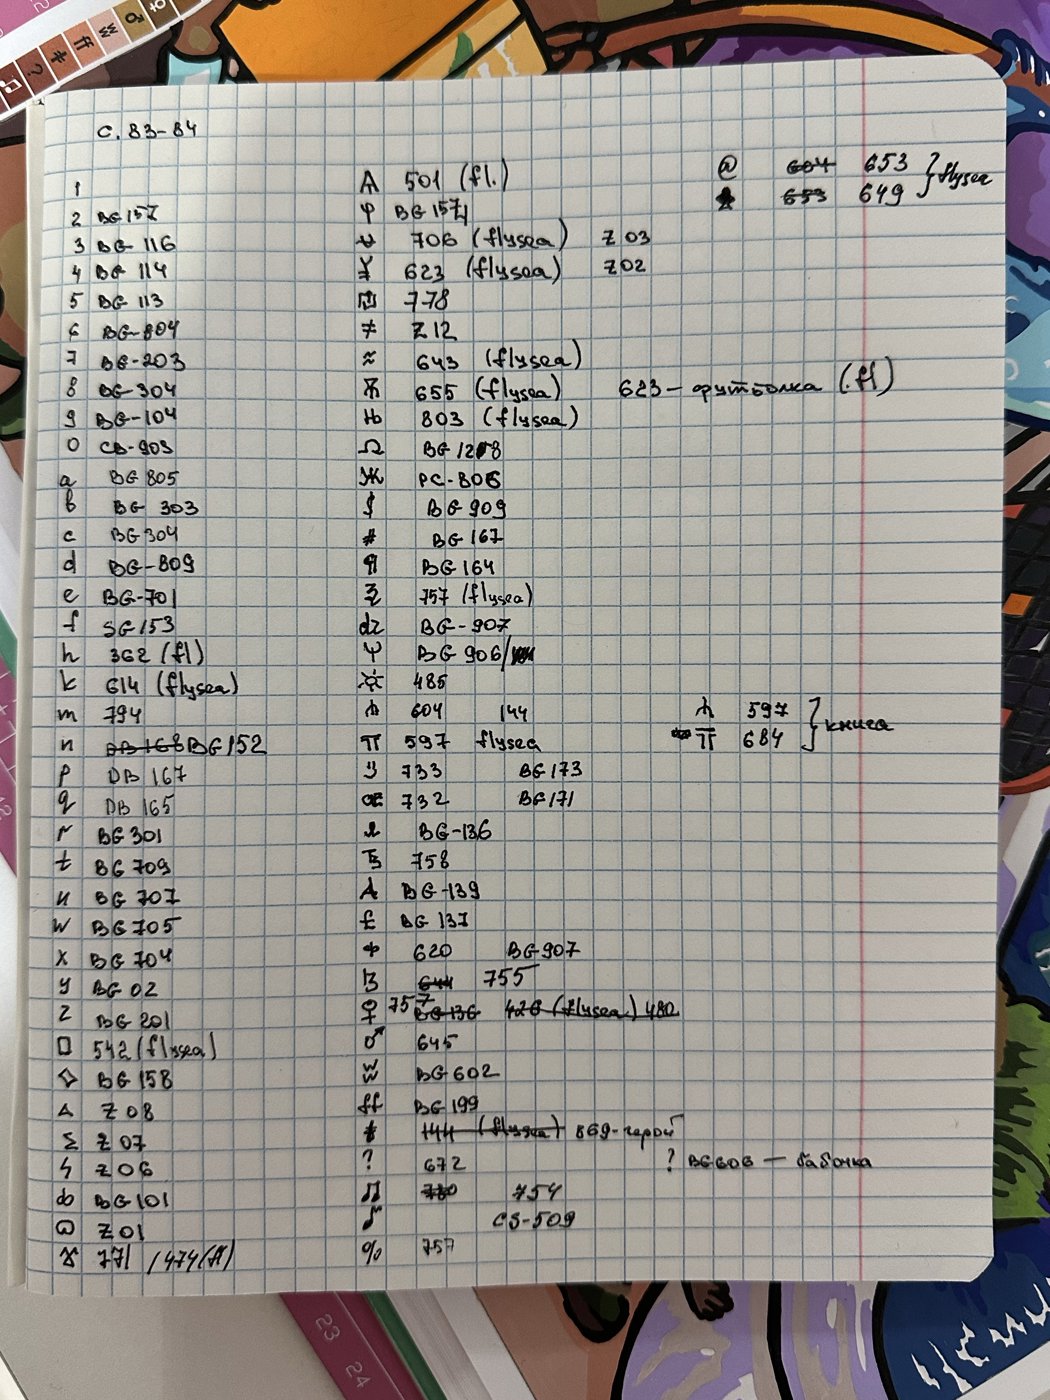 с. 83-84
1
2 BG 157
3 BG 116
4 BG 114
5 BG 113
6 BG-804
7 BG-203
8 BG-304
9 BG-104
0 CB-903
a BG 805
b BG 303
c BG 304
d BG-809
e BG-701
f SG 153
h 362 (fl)
k 614 (flysea)
m 794
n DB 168 BG 152
p DB 167
q DB 165
r BG 301
t BG 709
u BG 707
w BG 705
x BG 704
y BG 02
z BG 201
□ 542 (flysea)
BG 158
Δ Z 08
Σ Z 07
Z 06
BG 101
Z 01
771 / 474 (fl)
A 501 (fl.)
φ BG 154
706 (flysea) Z 03
623 (flysea) Z02
778
≠ Z 12
≈ 643 (flysea)
655 (flysea) 623 - футболка (fl)
803 (flysea)
Ω BG 128
Ж PC-806
$ BG 909
# BG 167
¶ BG 164
757 (flysea)
dz BG-907
Ψ BG 906/
☼ 485
604 144
π 597 flysea
733 BG 173
œ 732 BG 171
BG-136
758
A BG-139
£ BG 137
620 BG 907
644 755
♀ 757 BG 136 426 (flysea) 480
♂ 645
BG 602
ff BG 199
144 (flysea) 869-герой
? 672 ? BG 606 — бабочка
♫ 780 754
CS-509
% 757
@ 604 653 } flysea
♠ 653 649
597 } книга
π 684
23
24